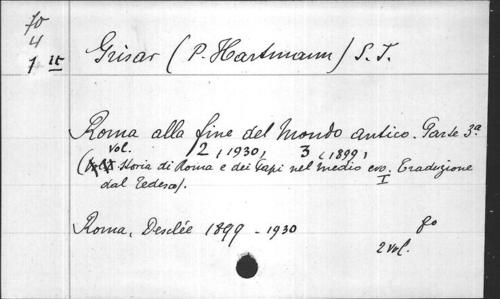 fo
4
1 it
Grisar (P. Hartmann) S. J.
Roma alla fine del Mondo antico. Parte 3ª
vol. 2 (1930, 3 (1899)
Storia di Roma e dei Papi nel medio evo. I Traduzione
dal Tedesco).
Roma, Desclée 1899 - 1930
2 vol.